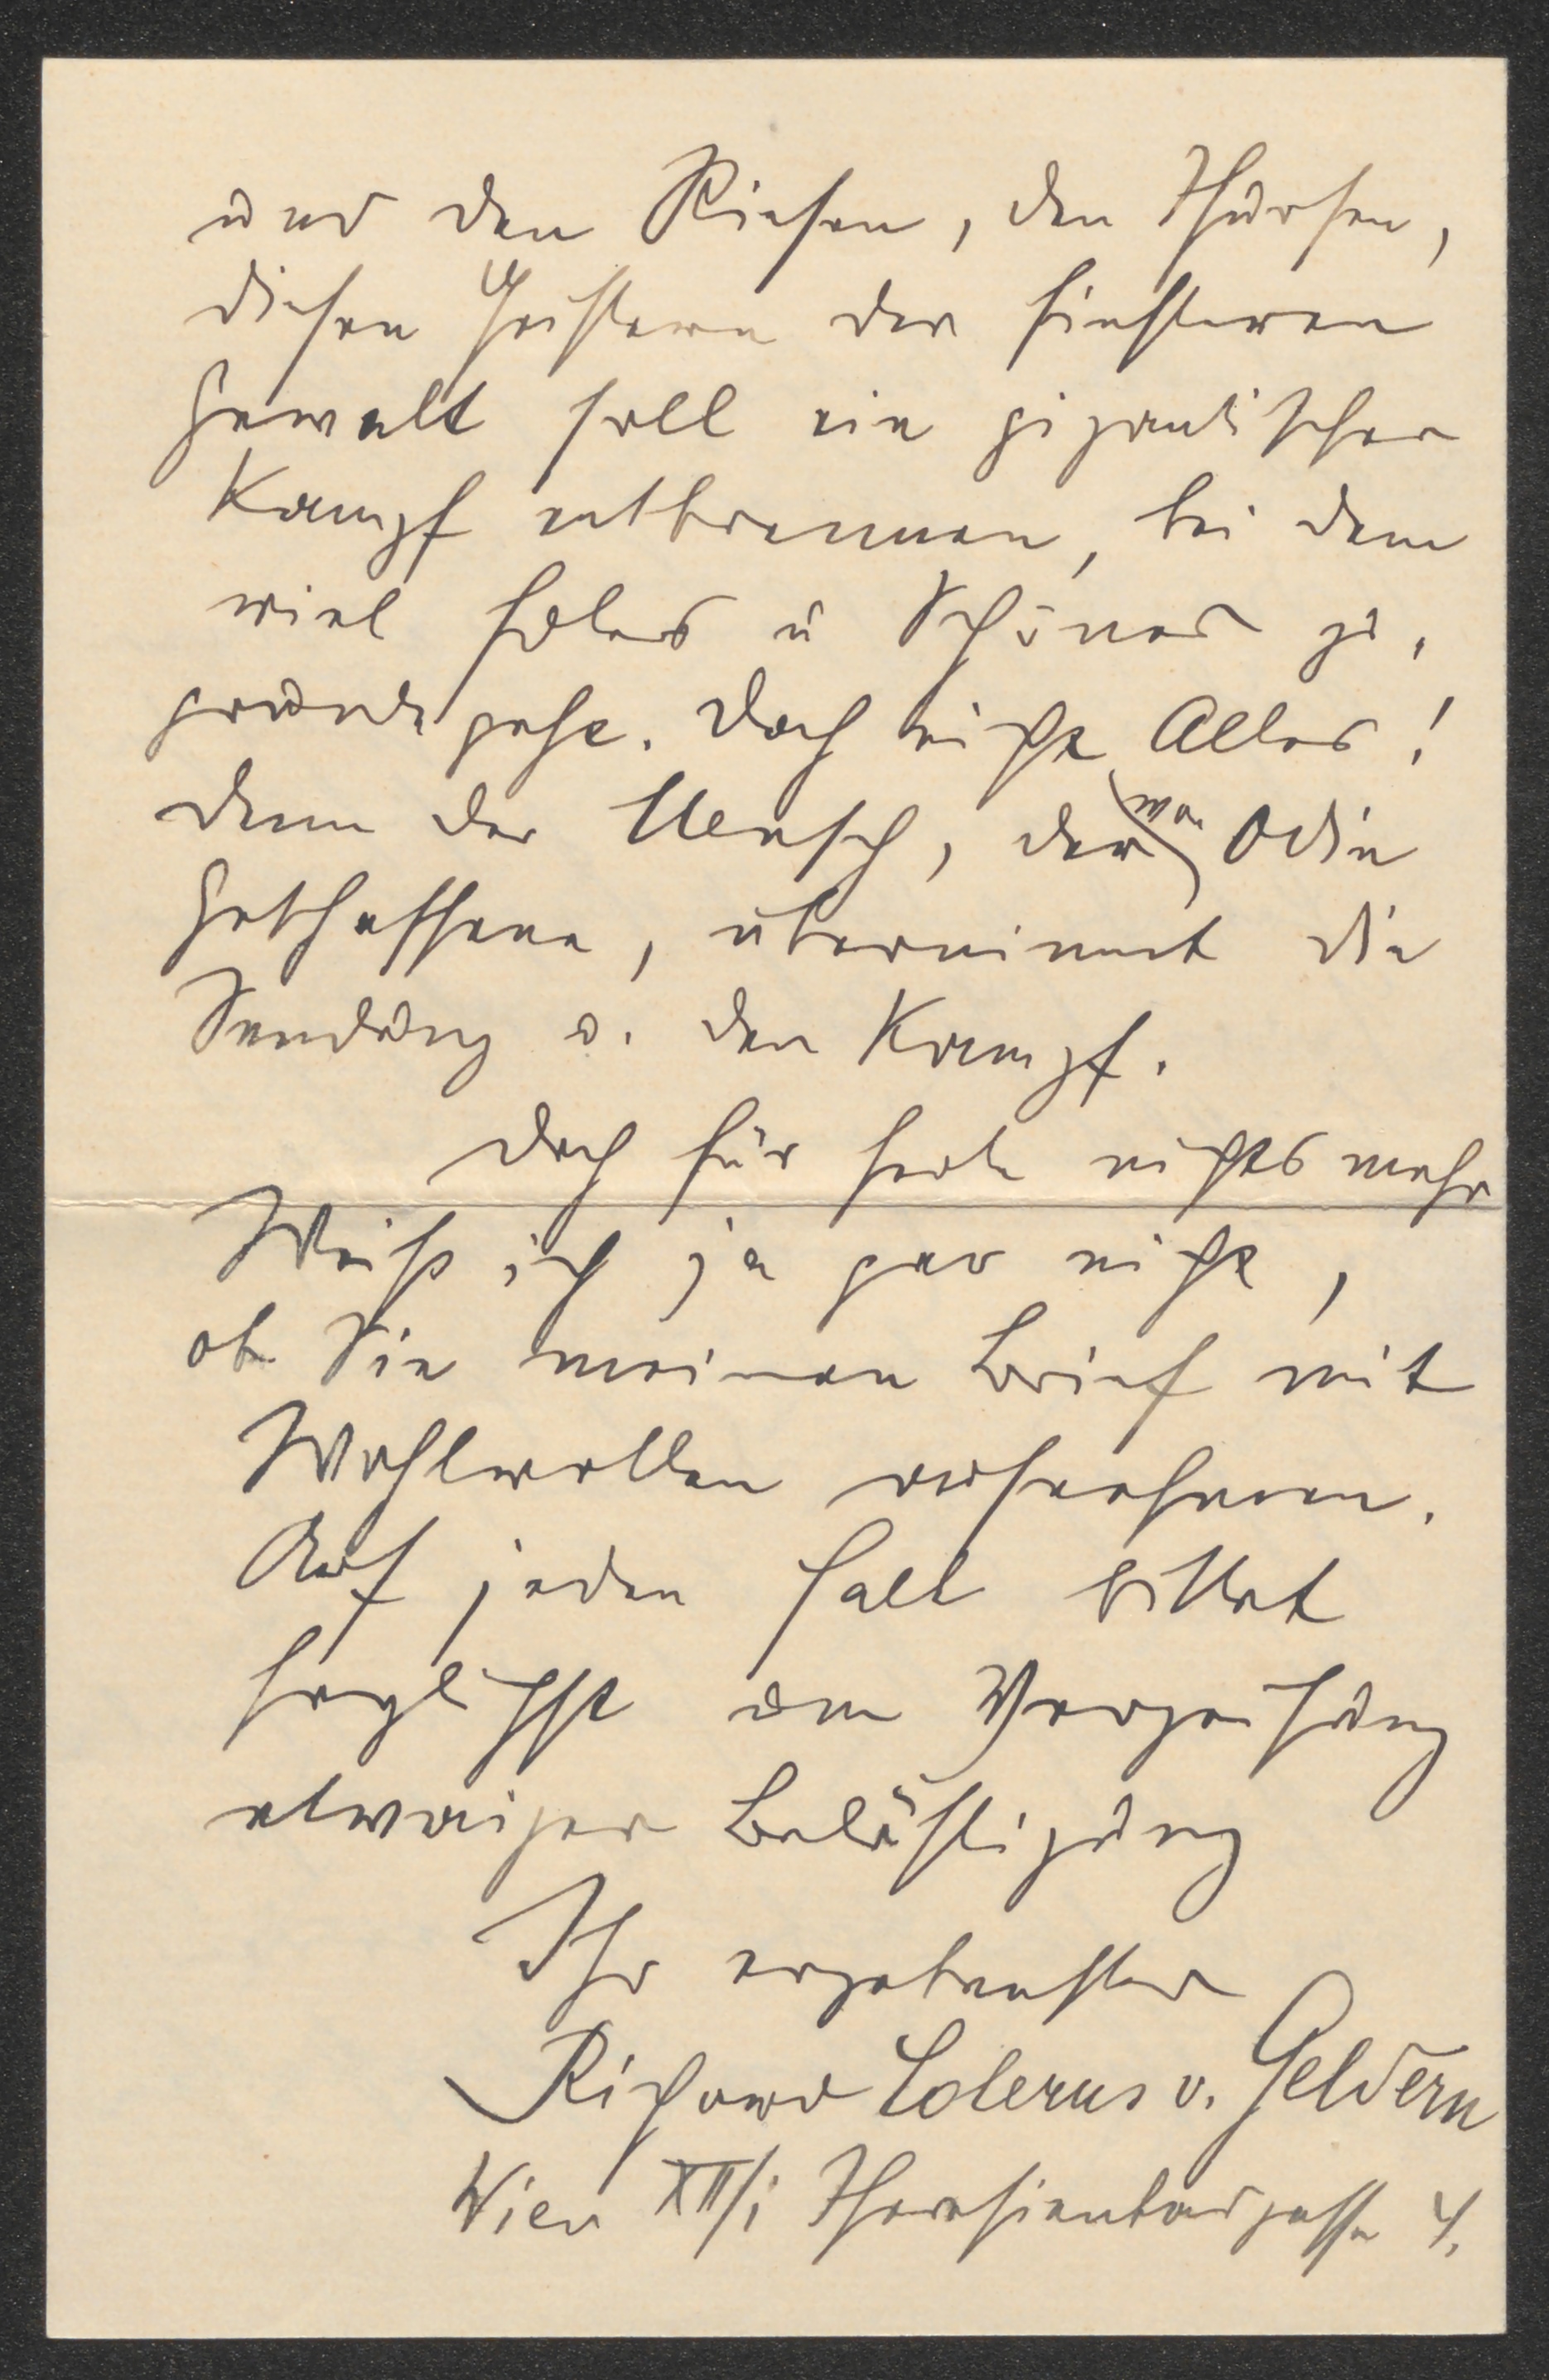 und den Riesen, den Thursen,
diesen Geistern der finsteren
Gewalt soll ein gigantischer
Kampf entbrennen, bei dem
viel Edles u Schönes zu
grunde geht. Doch nicht Alles!
denn der Mensch, der von Odin
Geschaffene, übernimmt die
Sendung u. den Kampf.
Doch für heute nichts mehr
Weiß ich ja gar nicht,
ob Sie meinen Brief mit
Wohlwollen aufnehmen.
Auf jeden Fall bittet
herzlichst um Verzeihung
etwaiger Belästigung
Ihr ergebenster
Richard Colerus v. Geldern
Wien XII/1 Theresienbadgasse 4.